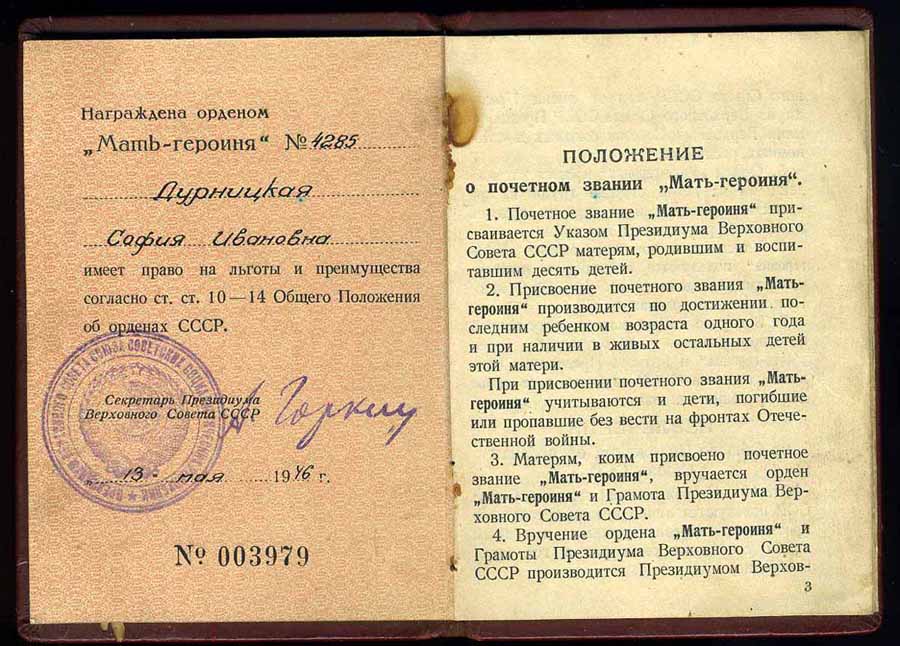 Награждена орденом
„Мать-героиня“ № 4285
Дурницкая
София Ивановна
имеет право на льготы и преимущества
согласно ст. ст. 10—14 Общего Положения
об орденах СССР.
Секретарь Президиума
Верховного Совета СССР
А Горкин
13 мая 1946 г.
№ 003979
ПОЛОЖЕНИЕ
о почетном звании „Мать-героиня“.
1. Почетное звание „Мать-героиня“ при-
сваивается Указом Президиума Верховного
Совета СССР матерям, родившим и воспи-
тавшим десять детей.
2. Присвоение почетного звания „Мать-
героиня“ производится по достижении по-
следним ребенком возраста одного года
и при наличии в живых остальных детей
этой матери.
При присвоении почетного звания „Мать-
героиня“ учитываются и дети, погибшие
или пропавшие без вести на фронтах Отече-
ственной войны.
3. Матерям, коим присвоено почетное
звание „Мать-героиня“, вручается орден
„Мать-героиня“ и Грамота Президиума Вер-
ховного Совета СССР.
4. Вручение ордена „Мать-героиня“ и
Грамоты Президиума Верховного Совета
СССР производится Президиумом Верхов-
3